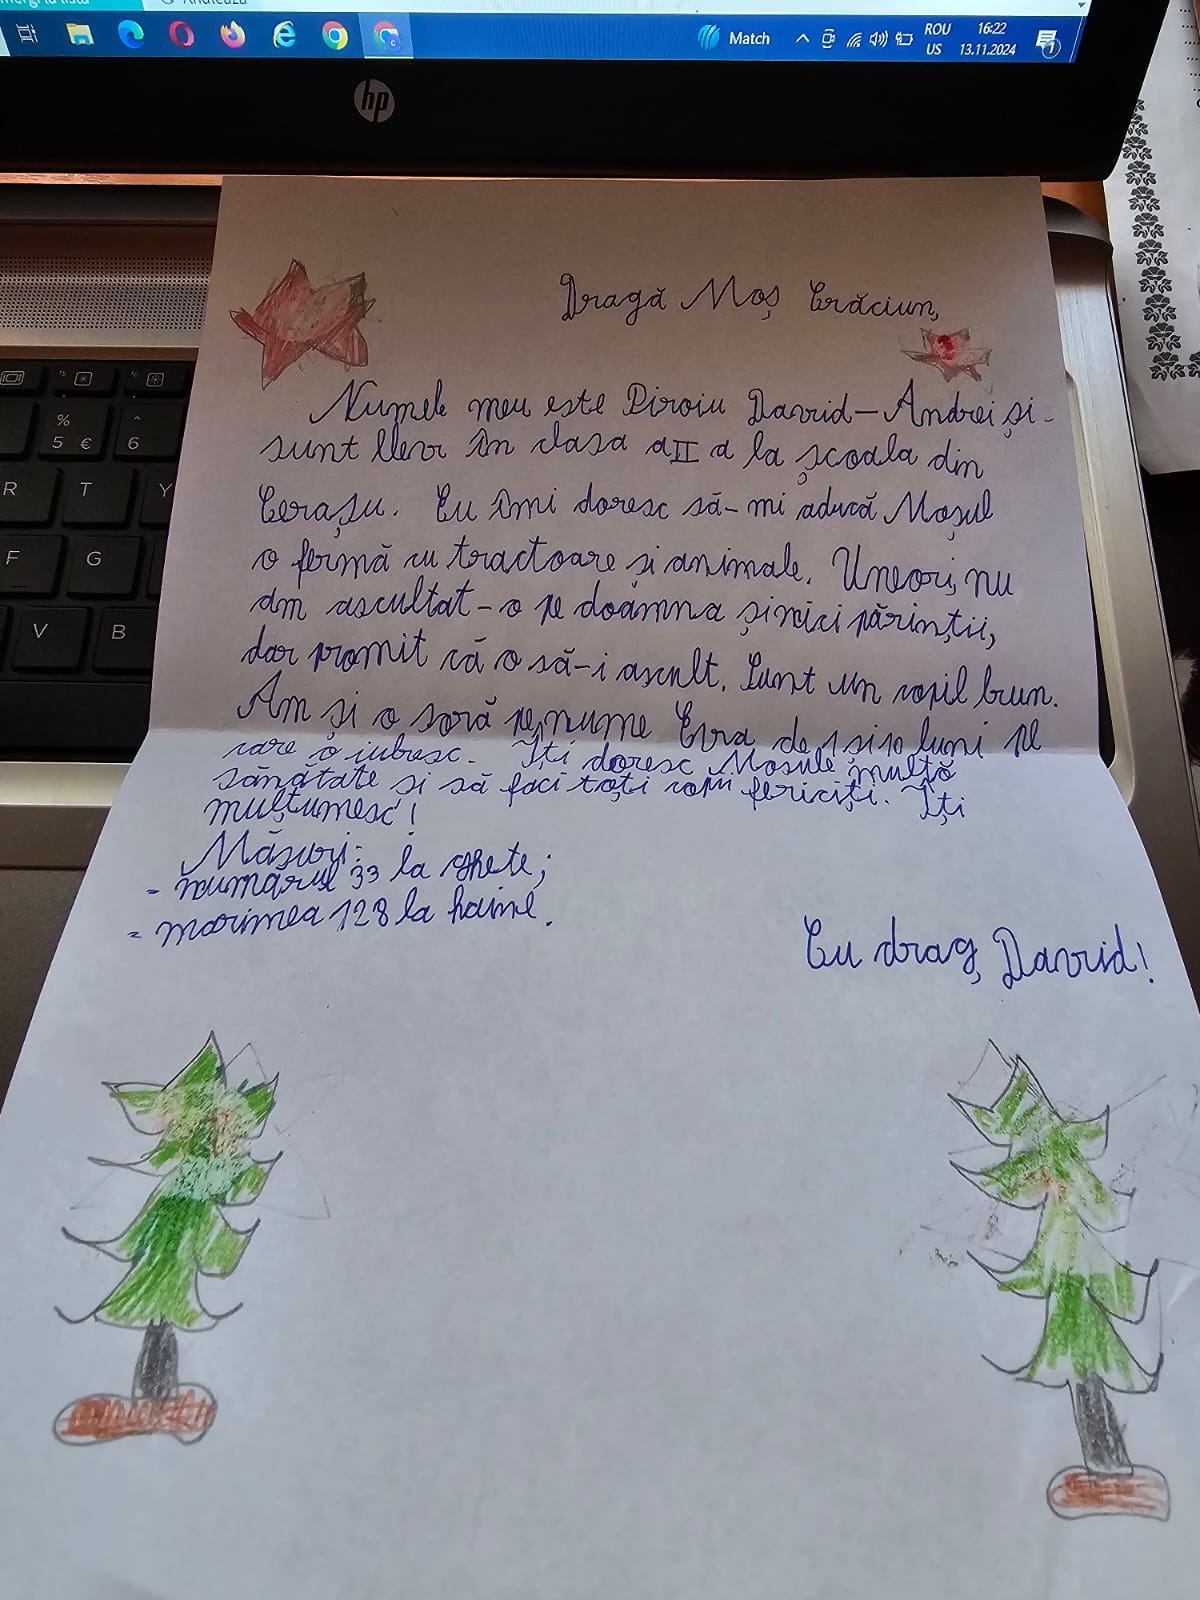 Match
ROU
US
16:22
13.11.2024
1
hp
%
5 €
^
6
R
T
Y
F
G
V
B
Dragă Moș Crăciun,
Numele meu este Piroiu David-Andrei și
sunt elev în clasa a II a la școala din
Cerașu. Eu îmi doresc să-mi aducă Moșul
o fermă cu tractoare și animale. Uneori, nu
am ascultat-o pe doamna și nici părinții,
dar promit că o să-i ascult. Sunt un copil bun.
Am și o soră pe nume Eva de 1 și 10 luni pe
care o iubesc. Îți doresc Moșule multă
sănătate și să faci toți copii fericiți. Îți
mulțumesc!
Măsuri:
- numărul 33 la ghete;
- marimea 128 la haine.
Cu drag, David!